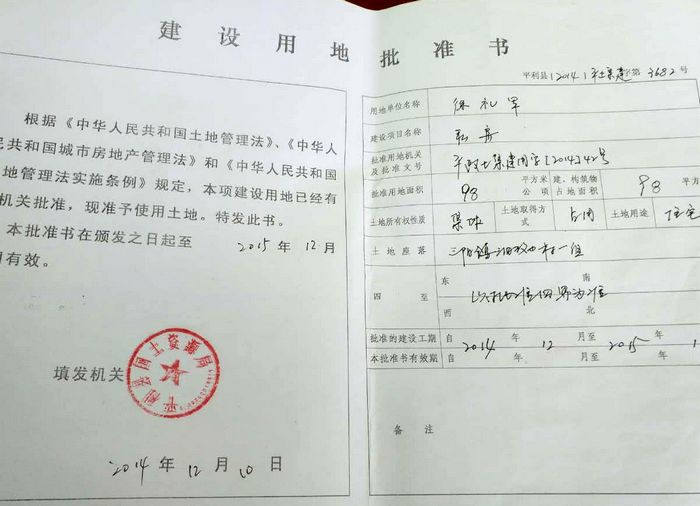 建设用地批准书
根据《中华人民共和国土地管理法》、《中华人
民共和国城市房地产管理法》和《中华人民共和国
地管理法实施条例》规定，本项建设用地已经有
机关批准，现准予使用土地。特发此书。
本批准书在颁发之日起至 2015 年 12 月
有效。
平利县国土资源局
填发机关
2014 年 12 月 10 日
平利县[2014] 字第 3682 号
用地单位名称 徐礼军
建设项目名称
批准用地机关
及批准文号 [2014]42号
批准用地面积 98 平方米 公顷 建、构筑物 占地面积 98 平方
土地所有权性质 集体 土地取得方式 占用 土地用途 住宅
土地座落 三阳镇 村一组
四至 东 南 西 北
批准的建设工期 自 2014 年 12 月至 2015 年 1
本批准书有效期 自 年 月至 年
备注